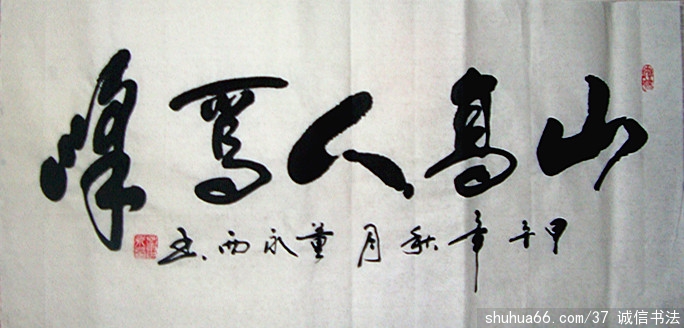 山高人為峰
甲午年秋月董永西书
shuhua66.com/37 诚信书法